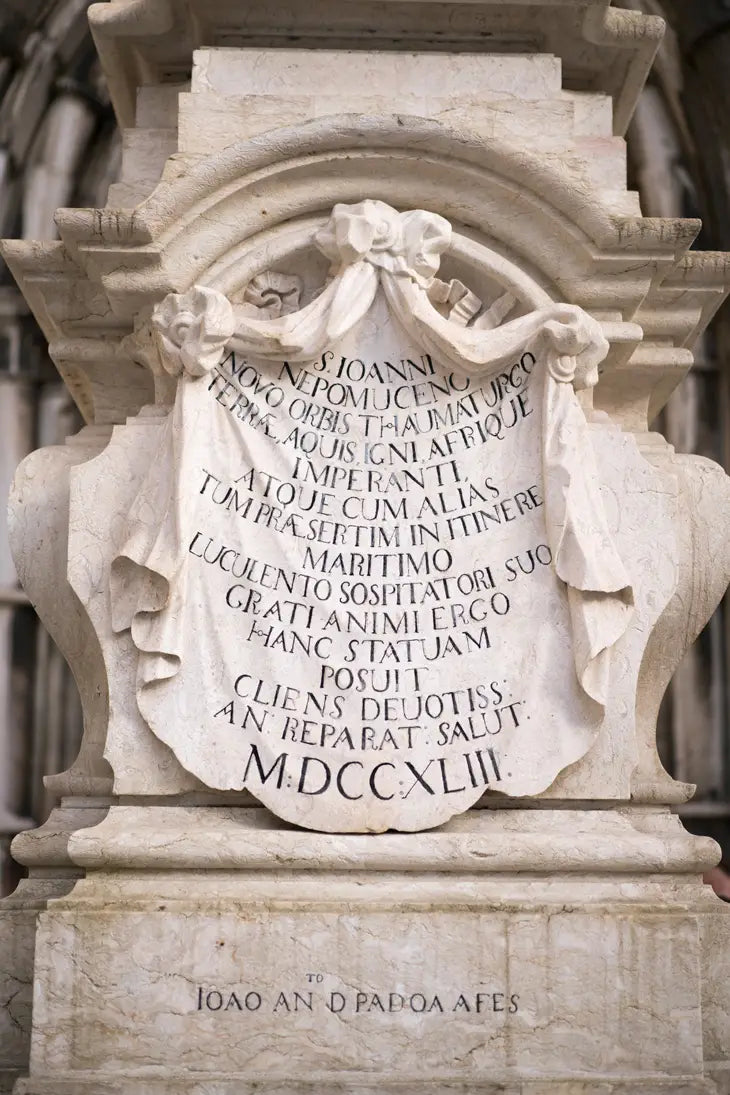 S. IOANNI
NEPOMUCENO
NOVO ORBIS THAUMATURGO
TERRÆ, AQUIS IGNI, AFRIQUE
IMPERANTI,
ATQUE CUM ALIÀS
TUM PRÆSERTIM IN ITINERE
MARITIMO
LUCULENTO SOSPITATORI SUO
GRATI ANIMI ERGO
HANC STATUAM
POSUIT
CLIENS DEUOTISS:
AN: REPARAT: SALUT:
M:DCC:XLIII:
TO
IOAO AN D PADOA A FES